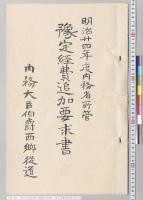 明治廿四年度内務省所管
豫定経費追加要求書
内務大臣伯爵西郷従道